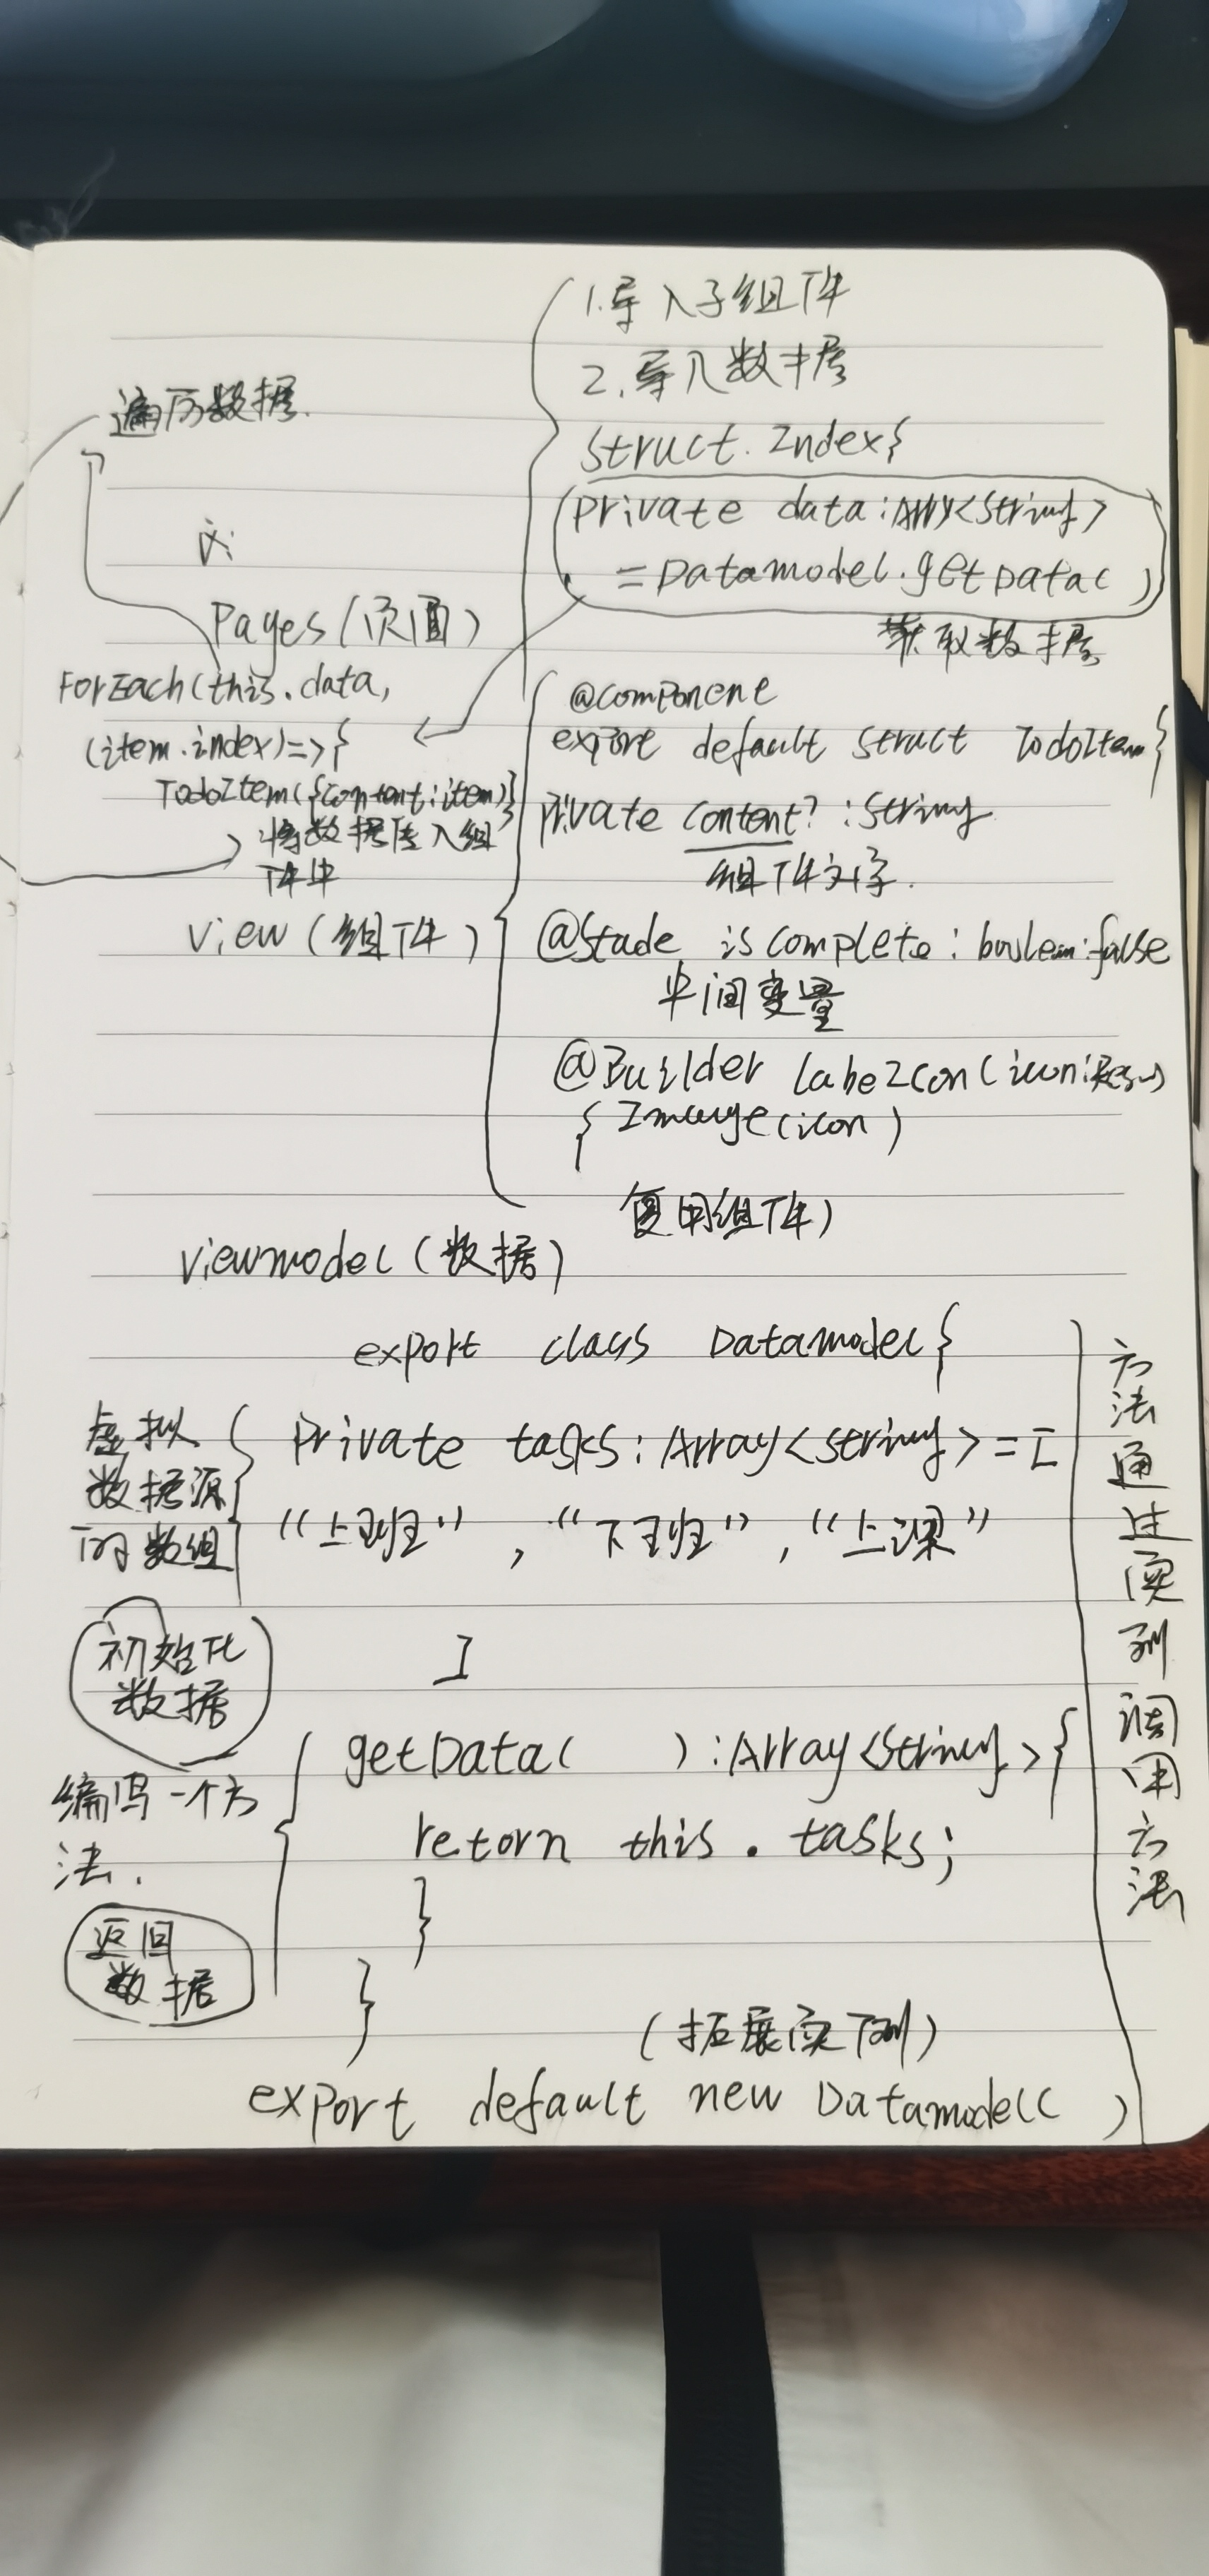 1.导入子组件
2.导入数据
struct.Index{
private data:Array<String>
=Datamodel.getData( )
获取数据
遍历数据.
Pages(页面)
ForEach(this.data,
(item.index)=>{
TodoItem({content:item})}
将数据传入组
件中
@component
export default struct TodoItem{
private content?:String
组件文字.
view(组件)
@Stade iscomplete:boolean:false
中间变量
@Builder labelIcon(icon:Res..)
{Image(icon)
复用组件)
viewmodel(数据)
export class Datamodel{
虚拟
数据源
的数组
private tasks:Array<string>=[
“上班”,“下班”,“上课”
]
初始化
数据
getData( ):Array<String>{
编写一个方
法.
return this.tasks;
}
返回
数据
}
(拓展实例)
export default new Datamodel( )
方法通过实例调用方法